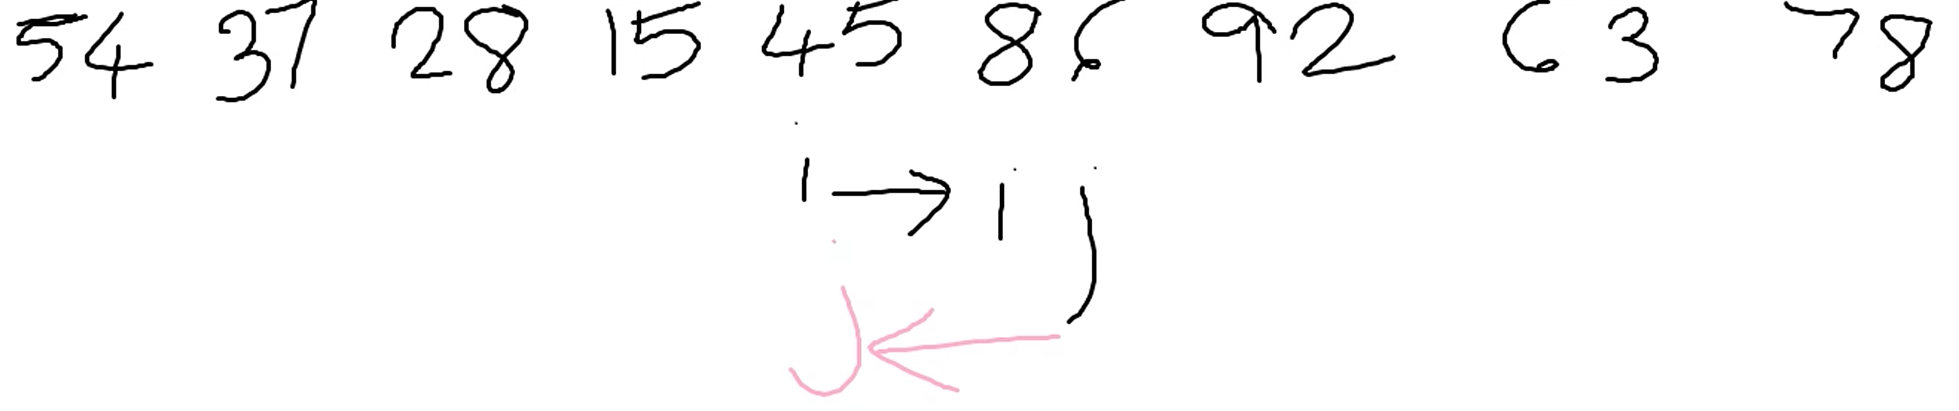 54 37 28 15 45 86 92 63 78
i → i j
j ←